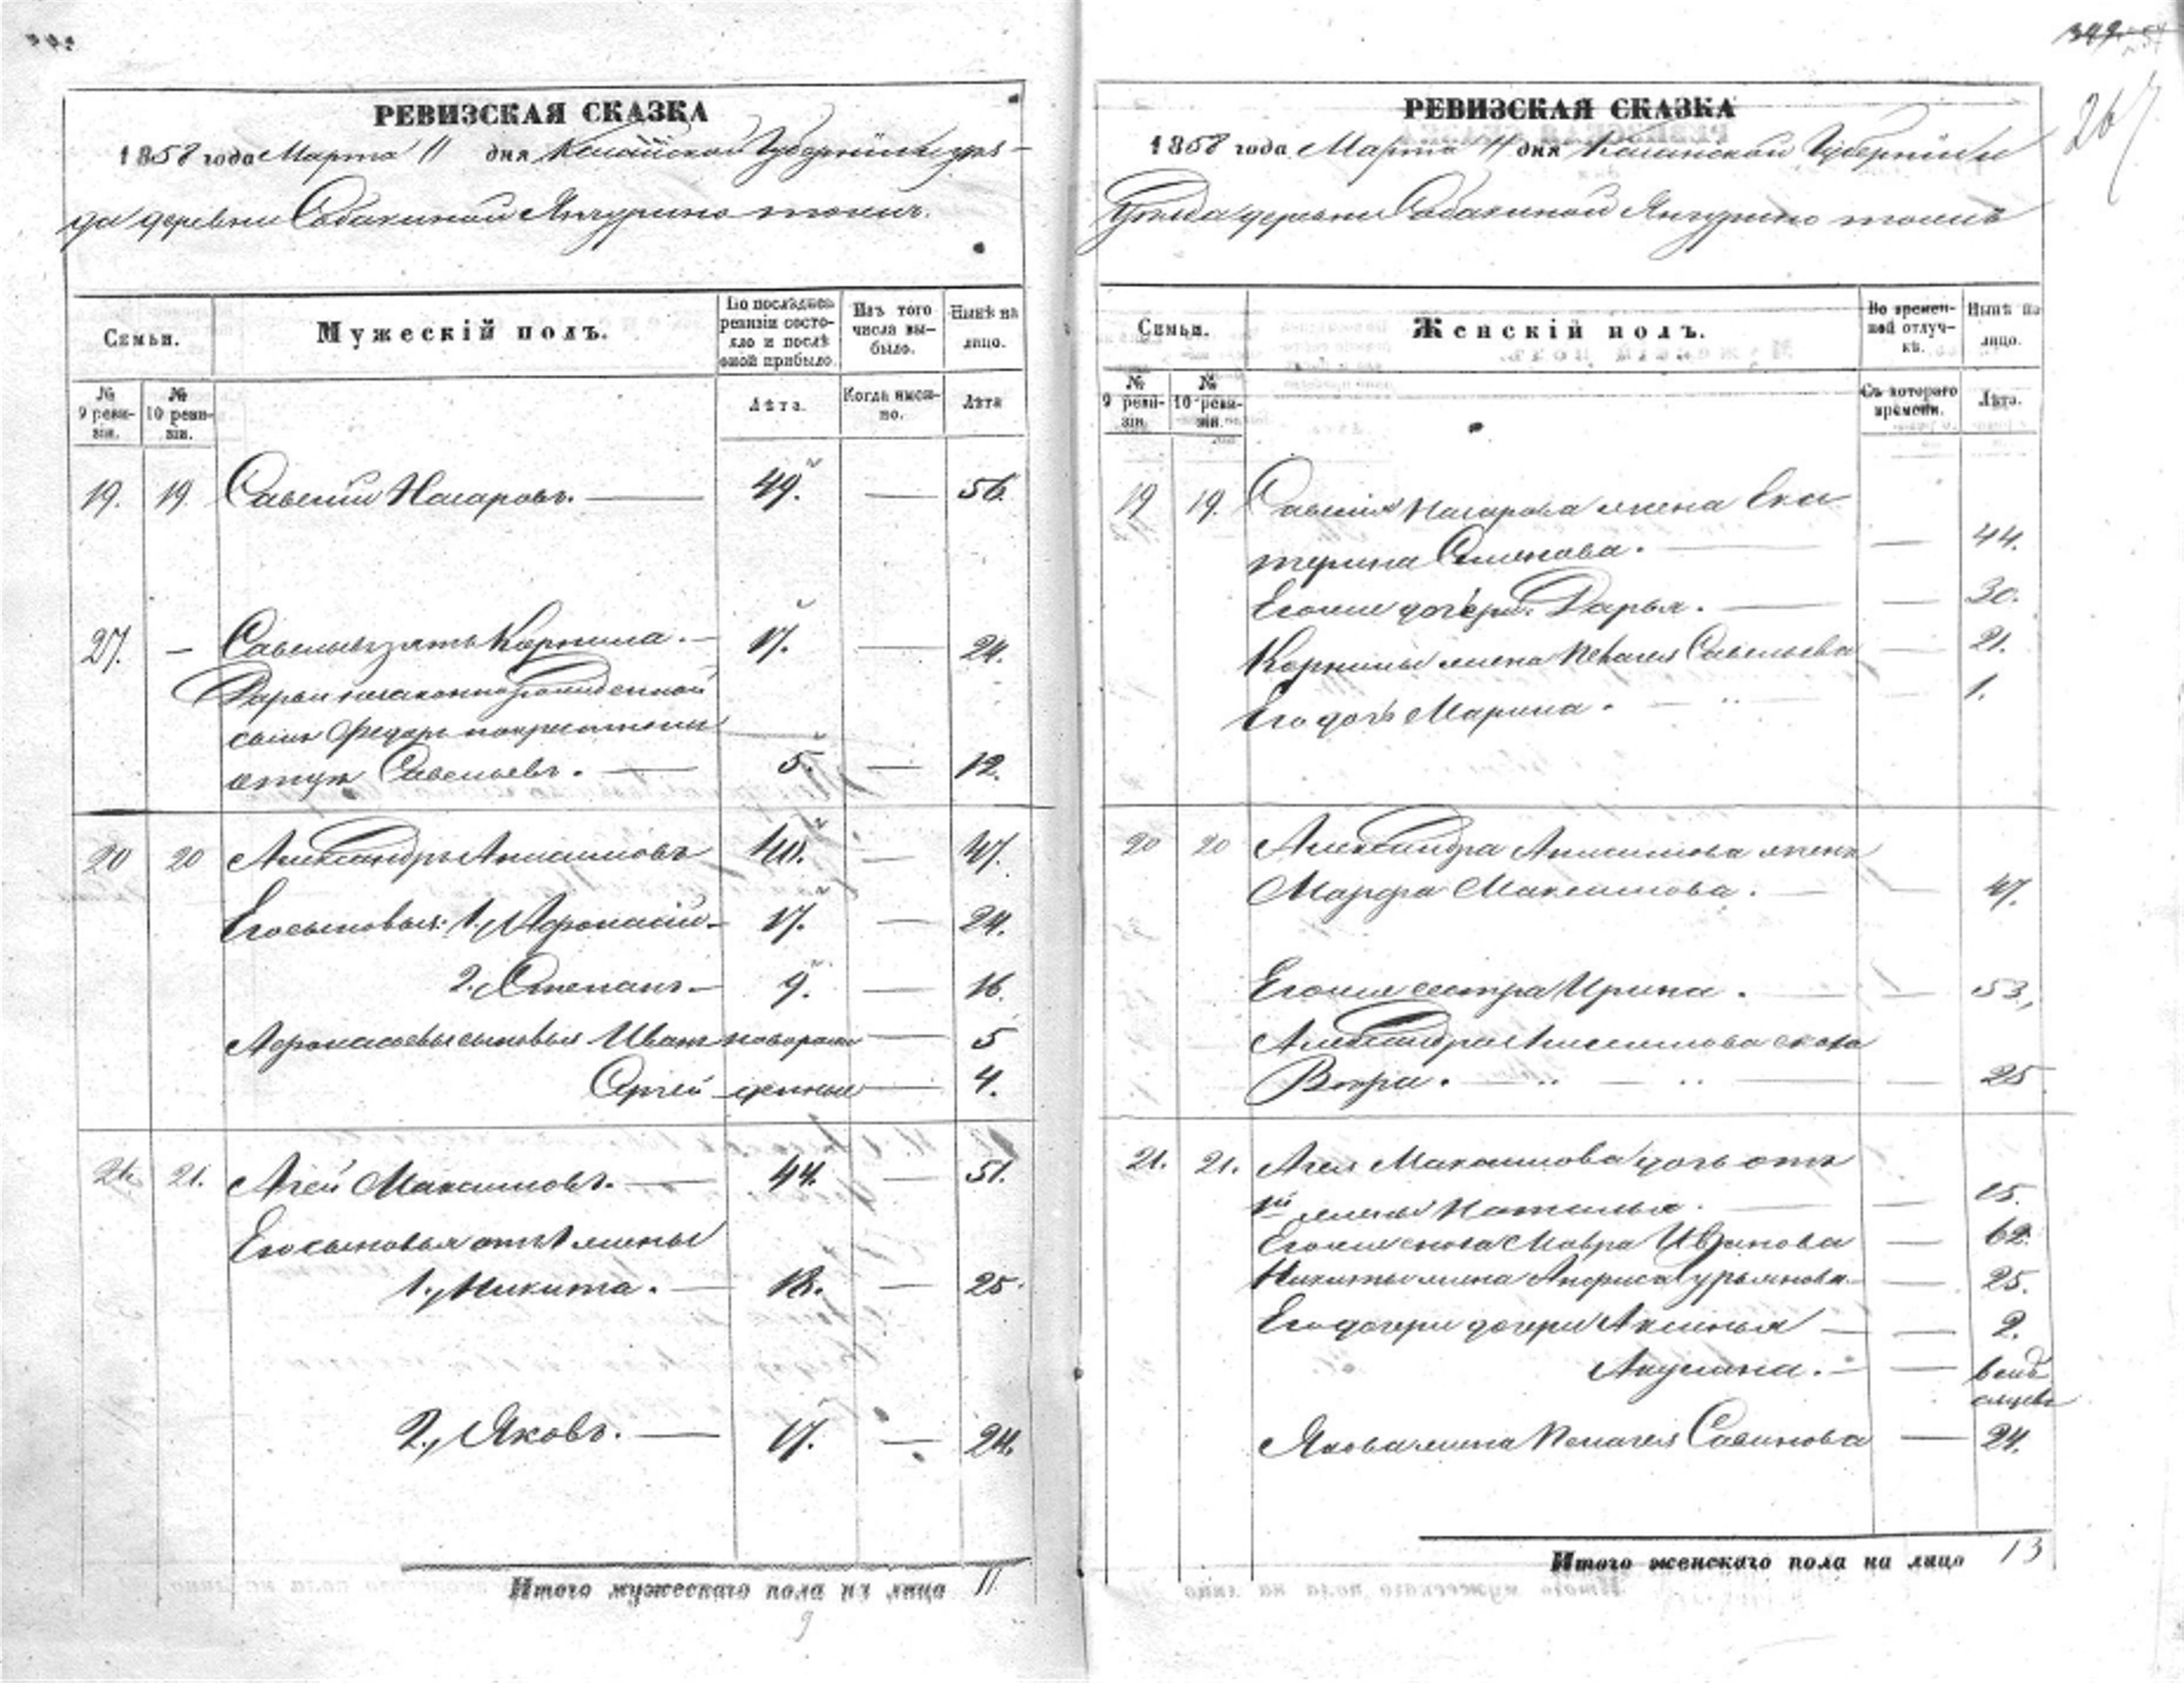 РЕВИЗСКАЯ СКАЗКА
1858 года Марта 11 дня Казанской Губернии и уѣз-
да деревни Собакиной Янчурино тожъ.
Семьи.
Мужескій полъ.
По послѣдней ревизіи состояло и послѣ оной прибыло.
Изъ того числа выбыло.
Нынѣ на лицо.
№ 9 ревизіи.
№ 10 ревизіи.
Лѣта.
Когда именно.
Лѣта
19. 19. Савелий Назаровъ. — 49. — 56.
27. — Савельевъ зять Корнила. — 17. — 24.
Дарьи незаконнорожденной
сынъ Федоръ по крестному
отцу Савельевъ. — 5. — 12.
20 20 Александръ Анисимовъ 40. — 47.
Его сыновья: 1. Афонасий — 17. — 24.
2. Степанъ — 9. — 16.
Афонасьевы сыновья Иванъ новорож — 5
Сергей денные — 4.
21. 21. Агей Максимовъ. — 44. — 51.
Его сыновья отъ 1 жены
1., Никита. — 18. — 25.
2., Яковъ. — 17. — 24.
Итого мужескаго пола на лицо 11
9
267
РЕВИЗСКАЯ СКАЗКА
1858 года Марта 11 дня Казанской Губернии и
Уѣзда деревни Собакиной Янчурино тожъ
Семьи.
Женскій полъ.
Во временной отлучкѣ.
Нынѣ на лицо.
№ 9 ревизіи.
№ 10 ревизіи.
Съ котораго времени.
Лѣта.
19 19. Савелия Назарова жена Ека
терина Семенова. — — 44.
Егоже дочери: Дарья. — — 30.
Корнилы жена Пелагея Савельева — 21.
Его дочь Марина. — 1.
20 20 Александра Анисимова жена
Марфа Максимова. — — 47.
Егоже сестра Ирина. — — 53,
Александра Анисимова сноха
Вѣра. — — — 25
21. 21. Агея Максимова дочь отъ
1й жены Наталья. — — 15.
Егоже сноха Мавра Иванова — 62.
Никиты жена Анфиса Гурьянова — 25.
Его дочери дочери Аксинья — — 2.
Акулина. — — 6 мѣс
яцевъ
Якова жена Пелагея Савинова — 24.
Итого женскаго пола на лицо 13